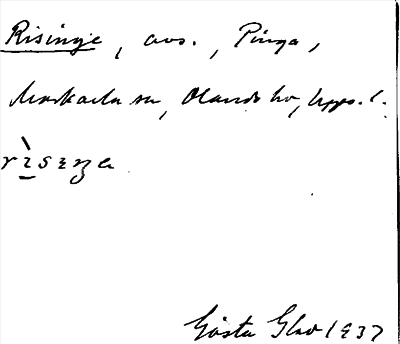 Risinge, avs., Pinga,
Markarla sn, Olands hd, Upps. l.
Gösta Glad 1937